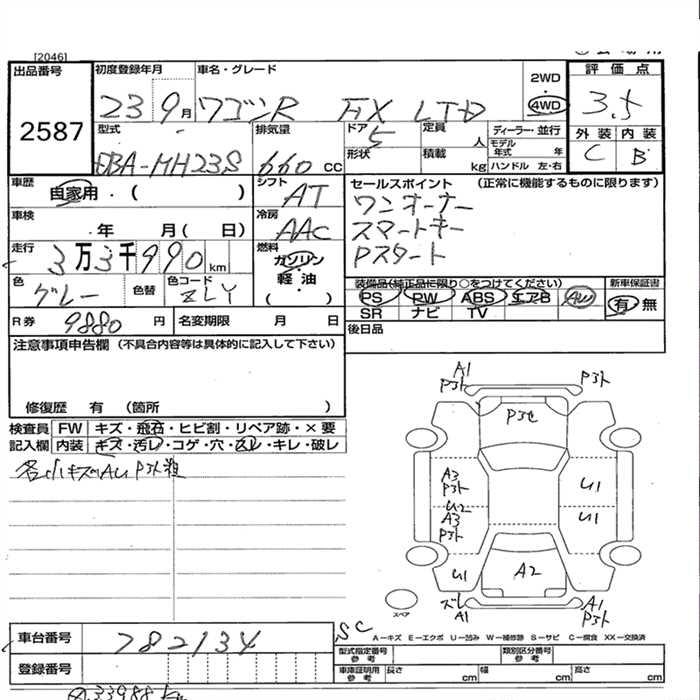 [2046]
出品番号 初度登録年月 車名・グレード 2WD 評価点
2587 23 9月 ワゴンR FX LTD 4WD 3.5
型式 排気量 ドア 5 定員 人 ディーラー・並行 外装 内装
DBA-MH23S 660 CC 形状 積載 kg モデル年式 年 C B
ハンドル 左・右
車歴 自家用・( ) シフト AT セールスポイント (正常に機能するものに限ります)
ワンオーナー
車検 年 月( 日) 冷房 AAC スマートキー
Pスタート
走行 3万3千990km 燃料 ガソリン・軽油 ( )
色 グレー 色替 色コード ZLY
装備品(純正品に限り○をつけてください) 新車保証書
PS PW ABS エアB AW 有・無
SR ナビ TV
R券 9880円 名変期限 月 日 後日品
注意事項申告欄(不具合内容等は具体的に記入して下さい)
修復歴 有 (箇所 )
検査員 FW キズ・飛石・ヒビ割・リペア跡・×要
記入欄 内装 キズ・汚レ・コゲ・穴・スレ・キレ・破レ
各小キズ
A1
P3ト P3ト
P3セ
A3
P3ト
U2
A3
P3ト
U1
U1
U1 A2
ズレ
A1
A1
P3ト
スペア
SC
A−キズ E−エクボ U−凹み W−補修跡 S−サビ C−腐食 XX−交換済
車台番号 782134
型式指定番号 参考 類別区分番号 参考
登録番号 車庫証明用 参考 長さ cm 幅 cm 高さ cm
33988km